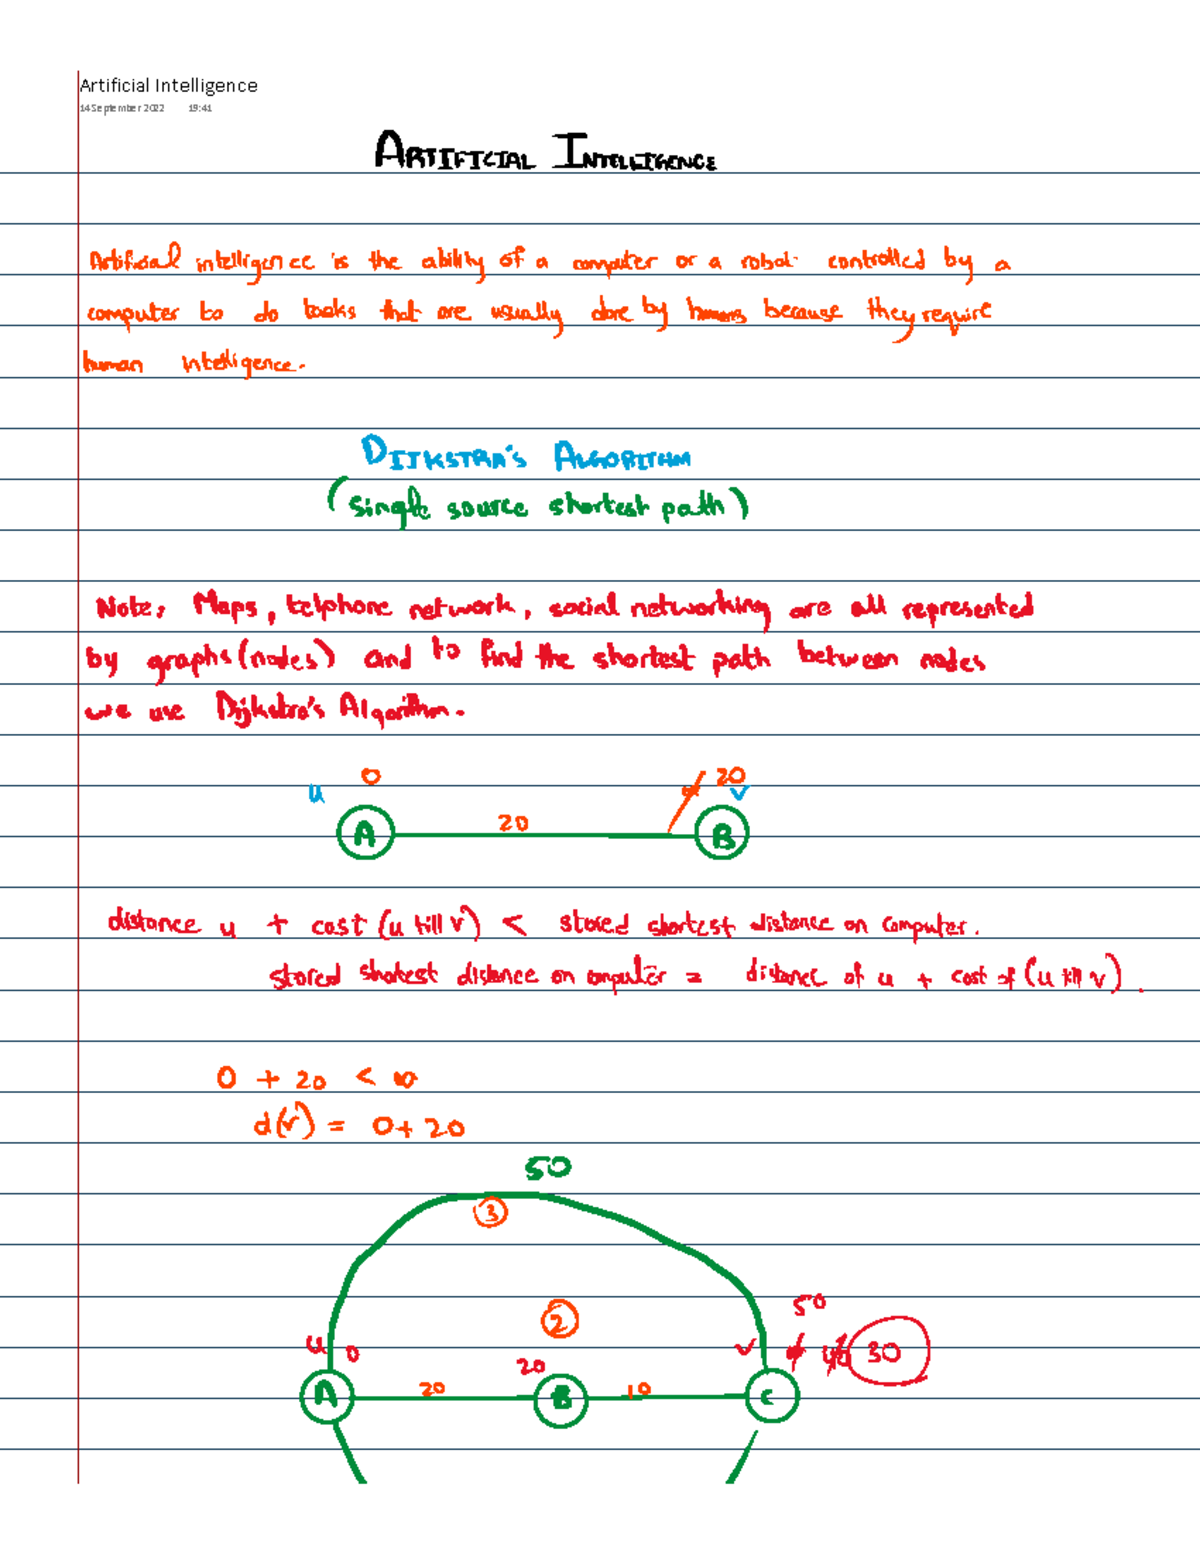 Artificial Intelligence
14 September 2022 19:41
ARTIFICIAL INTELLIGENCE
Artificial intelligence is the ability of a computer or a robot controlled by a
computer to do tasks that are usually done by humans because they require
human intelligence.
DIJKSTRA'S ALGORITHM
(single source shortest path)
Note: Maps, telphone network, social networking are all represented
by graphs (nodes) and to find the shortest path between nodes
we use Dijkstra's Algorithm.
u 0 ∞ 20 v
A 20 B
distance u + cost (u till v) < stored shortest distance on computer.
stored shortest distance on computer = distance of u + cost of (u till v).
0 + 20 < ∞
d(v) = 0 + 20
50
3
50
2
u 0 20 v ∞ 30
A 20 B 10 C